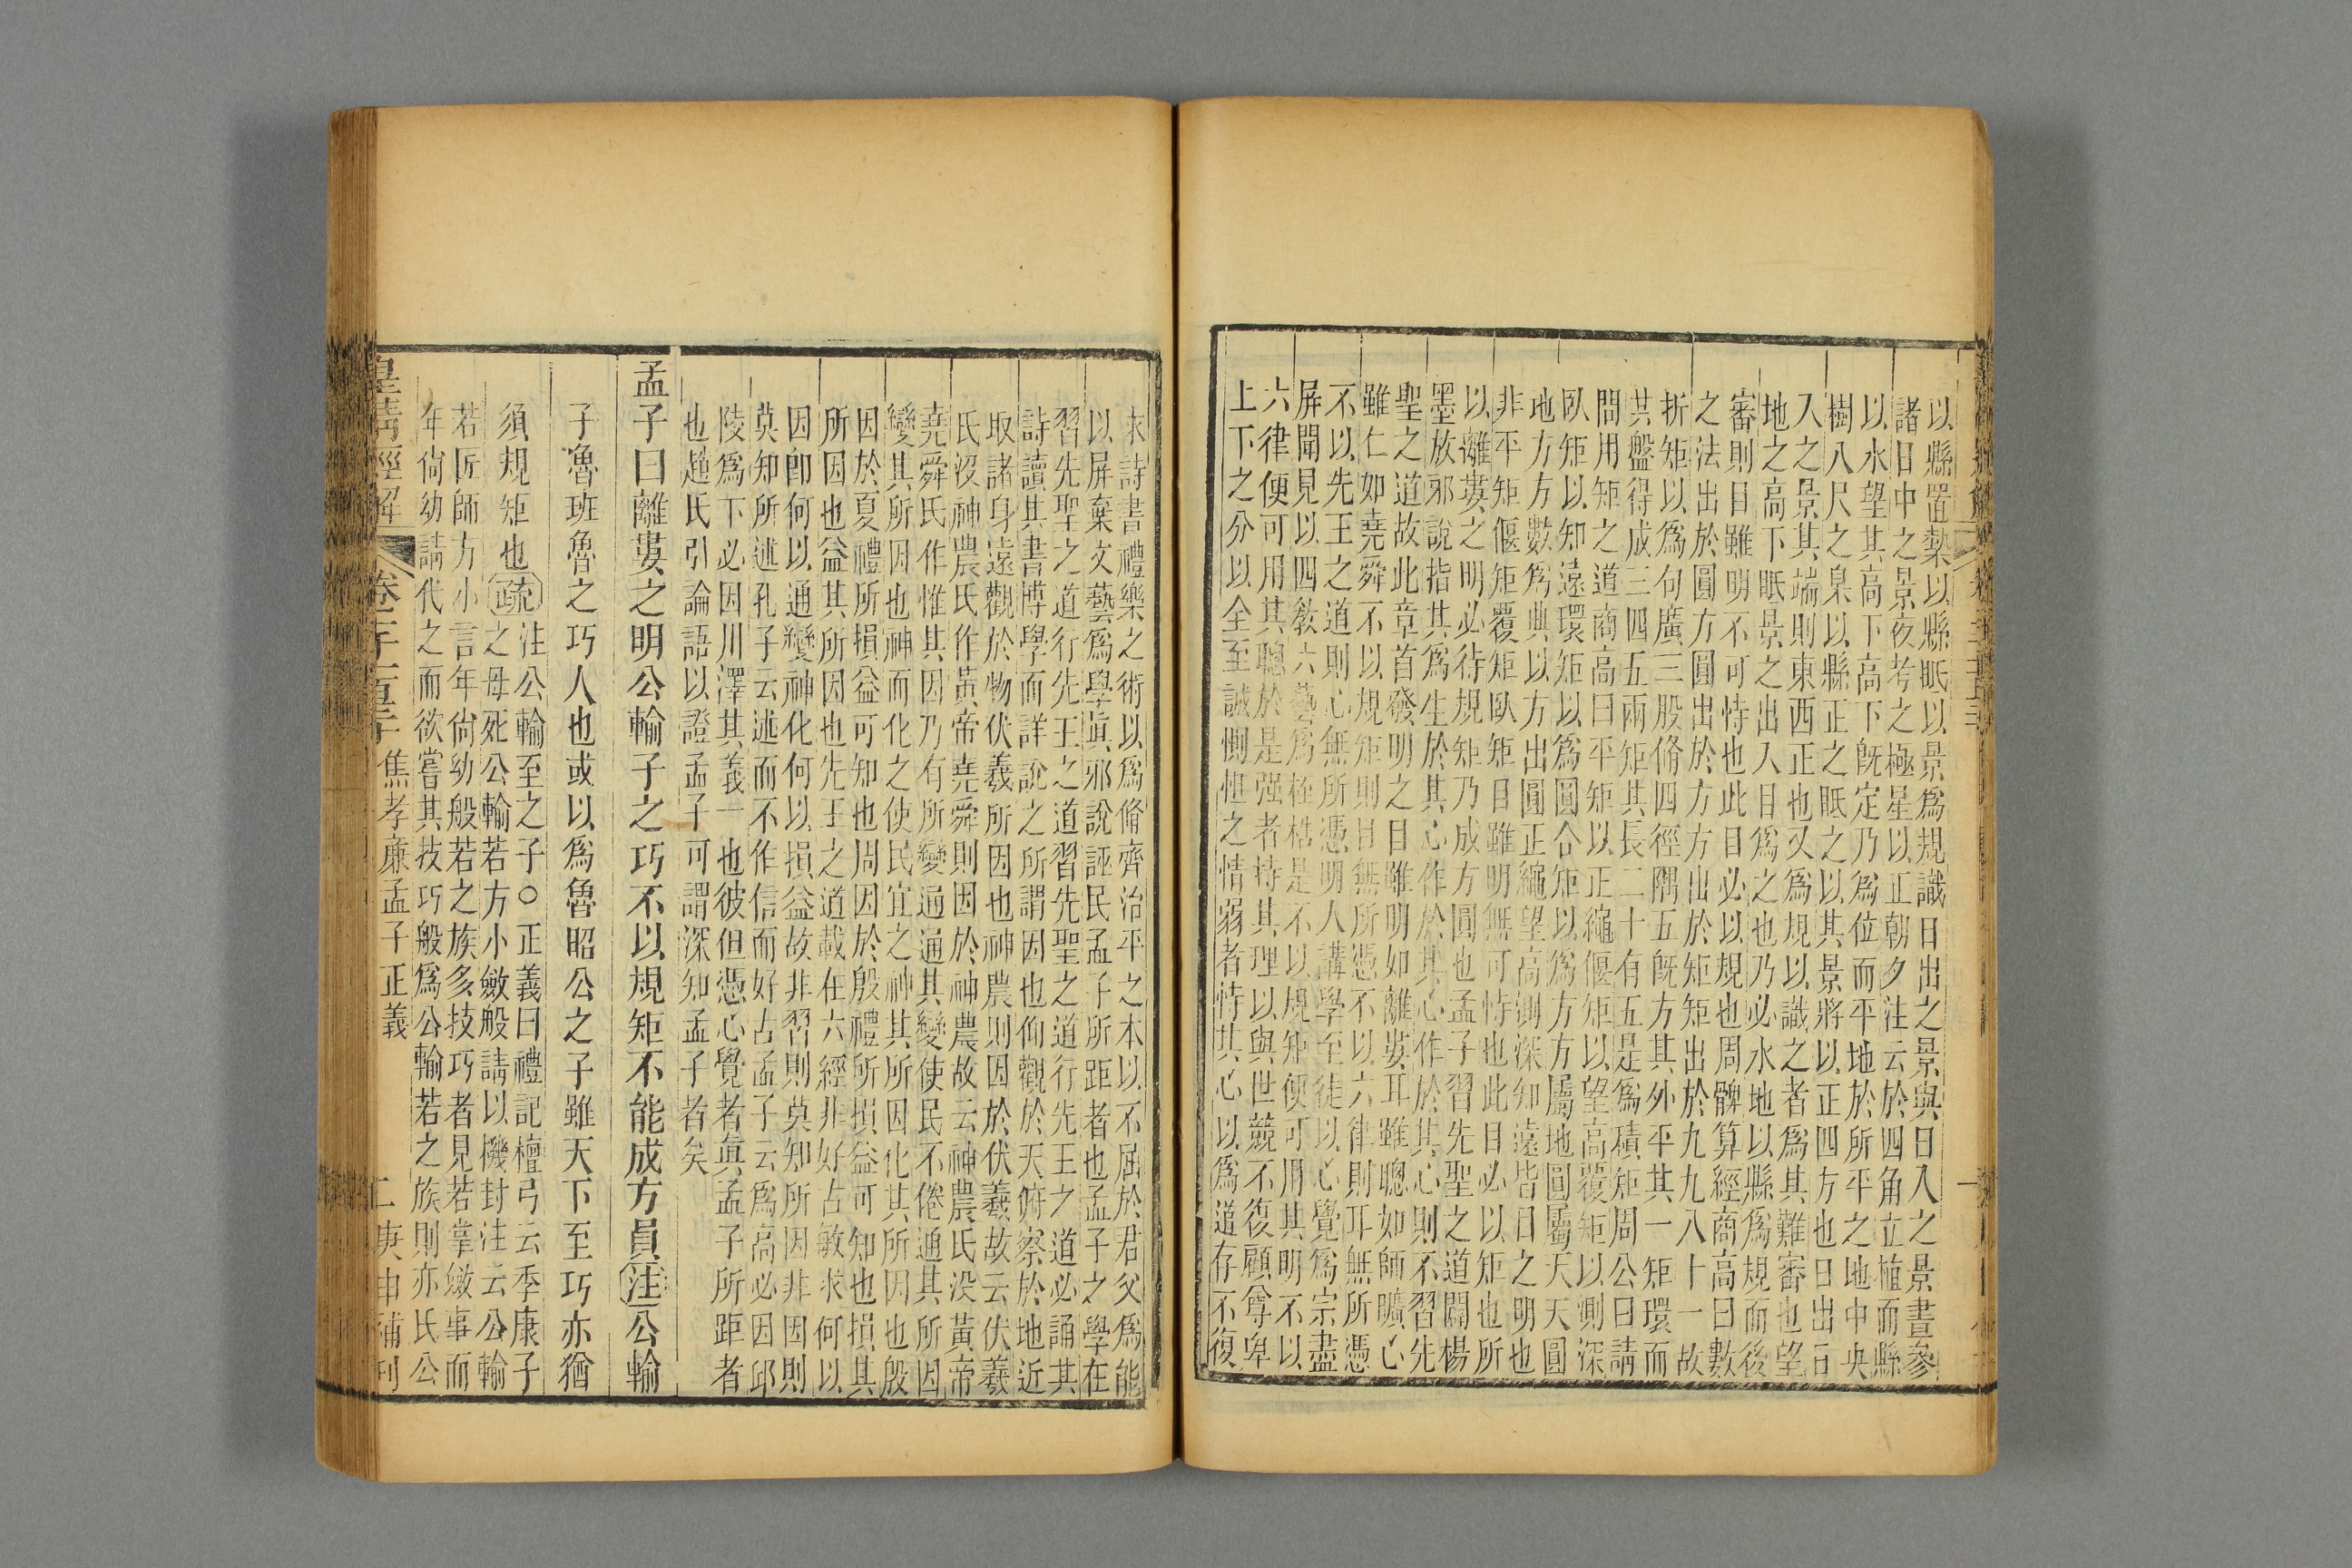 以縣置槷以縣眡以景爲規識日出之景與日入之景晝參
諸日中之景夜考之極星以正朝夕注云於四角立植而縣
以水望其高下高下旣定乃爲位而平地於所平之地中央
樹八尺之臬以縣正之眡之以其景將以正四方也日出日
入之景其端則東西正也又爲規以識之者爲其難審也望
地之高下眡景之出入目爲之也乃必水地以縣爲規而後
審則目雖明不可恃也此目必以規也周髀算經商高曰數
之法出於圓方圓出於方方出於矩矩出於九九八十一故
折矩以爲句廣三股脩四徑隅五旣方其外平其一矩環而
其盤得成三四五兩矩其長二十有五是爲積矩周公曰請
問用矩之道商高曰平矩以正繩偃矩以望高覆矩以測深
臥矩以知遠環矩以爲圓合矩以爲方方屬地圓屬天天圓
地方方數爲典以方出圓正繩望高測深知遠皆目之明也
非平矩偃矩覆矩臥矩目雖明無可恃也此目必以矩也所
以離婁之明必待規矩乃成方圓也孟子習先聖之道闢楊
墨放邪說指其爲生於其心作於其心作於其心則不習先
聖之道故此章首發明之目雖明如離婁耳雖聰如師曠心
雖仁如堯舜不以規矩則目無所憑不以六律則耳無所憑
不以先王之道則心無所憑明人講學至徒以心覺爲宗盡
屏聞見以四敎六藝爲桎梏是不以規矩便可用其明不以
六律便可用其聰於是强者持其理以與世競不復顧尊卑
上下之分以全至誠惻怛之情弱者恃其心以爲道存不復
求詩書禮樂之術以爲脩齊治平之本以不屈於君父爲能
以屏棄文藝爲學眞邪說誣民孟子所距者也孟子之學在
習先聖之道行先王之道習先聖之道行先王之道必誦其
詩讀其書博學而詳說之所謂因也仰觀於天俯察於地近
取諸身遠觀於物伏羲所因也神農則因於伏羲故云伏羲
氏沒神農氏作黃帝堯舜則因於神農故云神農氏没黃帝
堯舜氏作惟其因乃有所變通通其變使民不倦通其所因
變其所因也神而化之使民宜之神其所因化其所因也殷
因於夏禮所損益可知也周因於殷禮所損益可知也損其
所因也益其所因也先王之道載在六經非好古敏求何以
因卽何以通變神化何以損益故非習則莫知所因非因則
莫知所述孔子云述而不作信而好古孟子云爲高必因邱
陵爲下必因川澤其義一也彼但憑心覺者眞孟子所距者
也趙氏引論語以證孟子可謂深知孟子者矣
孟子曰離婁之明公輸子之巧不以規矩不能成方員注公輸
子魯班魯之巧人也或以爲魯昭公之子雖天下至巧亦猶
須規矩也疏注公輸至之子○正義曰禮記檀弓云季康子
之母死公輸若方小斂般請以機封注云公輸
若匠師方小言年尙幼般若之族多技巧者見若掌斂事而
年尙幼請代之而欲嘗其技巧般爲公輸若之族則亦氏公
皇淸經解 卷 焦孝廉孟子正義 二 庚申補刊